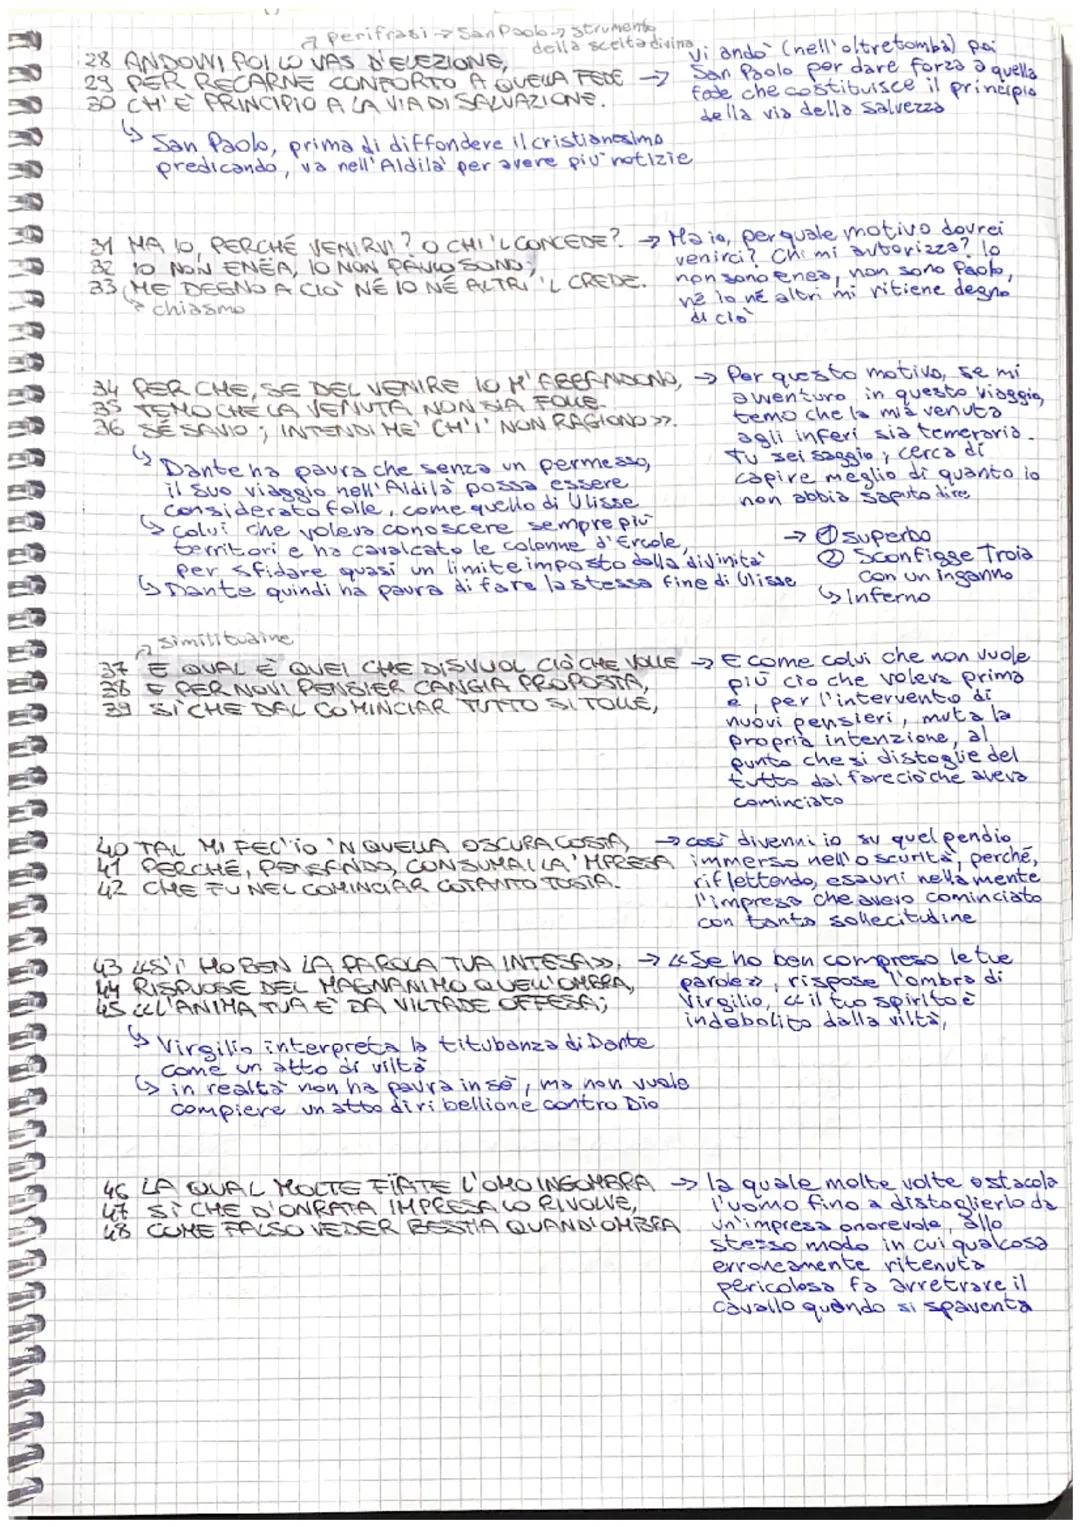 perifrasi → San Paolo → strumento
della scelta divina
28 ANDOVVI POI LO VAS D'ELEZIONE,
29 PER RECARNE CONFORTO A QUELLA FEDE →
30 CH'È PRINCIPIO A LA VIA DI SALVAZIONE.
Vi andò (nell'oltretomba) poi
San Paolo per dare forza a quella
fede che costituisce il principio
della via della salvezza
↳ San Paolo, prima di diffondere il cristianesimo
predicando, va nell'Aldilà per avere piu' notizie
31 MA IO, PERCHÉ VENIRVI? O CHI 'L CONCEDE? →
32 IO NON ENËA, IO NON PAULO SONO;
33 ME DEGNO A CIÒ NÉ IO NÉ ALTRI 'L CREDE.
↳ chiasmo
Ma io, per quale motivo dovrei
venirci? Chi mi autorizza? Io
non sono Enea, non sono Paolo,
né io né altri mi ritiene degno
di ciò
34 PER CHE, SE DEL VENIRE IO M'ABBANDONO, →
35 TEMO CHE LA VENUTA NON SIA FOLLE.
36 SÉ SAVIO; INTENDI ME' CH'I' NON RAGIONO>>.
Per questo motivo, se mi
avventuro in questo viaggio,
temo che la mia venuta
agli inferi sia temeraria.
Tu sei saggio; cerca di
capire meglio di quanto io
non abbia saputo dire
↳ Dante ha paura che senza un permesso,
il suo viaggio nell'Aldilà possa essere
considerato folle, come quello di Ulisse
↳ colui che voleva conoscere sempre più
territori e ha cavalcato le colonne d'Ercole,
per sfidare quasi un limite imposto dalla divinità
↳ Dante quindi ha paura di fare la stessa fine di Ulisse
→ ① superbo
② Sconfigge Troia
con un inganno
↳ Inferno
similitudine
37 E QUAL È QUEI CHE DISVUOL CIÒ CHE VOLLE →
38 E PER NOVI PENSIER CANGIA PROPOSTA,
39 SÌ CHE DAL COMINCIAR TUTTO SI TOLLE,
E come colui che non vuole
più ciò che voleva prima
e, per l'intervento di
nuovi pensieri, muta la
propria intenzione, al
punto che si distoglie del
tutto dal fare ciò che aveva
cominciato
40 TAL MI FEC'ÏO 'N QUELLA OSCURA COSTA, →
41 PERCHÉ, PENSANDO, CONSUMAI LA 'MPRESA
42 CHE FU NEL COMINCIAR COTANTO TOSTA.
così divenni io su quel pendio
immerso nell'oscurità, perché,
riflettendo, esaurii nella mente
l'impresa che avevo cominciato
con tanta sollecitudine
43 <<S'I' HO BEN LA PAROLA TUA INTESA>>, →
44 RISPUOSE DEL MAGNANIMO QUELL'OMBRA,
45 <<L'ANIMA TUA È DA VILTADE OFFESA;
<<Se ho ben compreso le tue
parole>>, rispose l'ombra di
Virgilio, <<il tuo spirito è
indebolito dalla viltà,
↳ Virgilio interpreta la titubanza di Dante
come un atto di viltà
↳ in realtà non ha paura in sé, ma non vuole
compiere un atto di ribellione contro Dio
46 LA QUAL MOLTE FÏATE L'OMO INGOMBRA →
47 SÌ CHE D'ONRATA IMPRESA LO RIVOLVE,
48 COME FALSO VEDER BESTIA QUAND'OMBRA
la quale molte volte ostacola
l'uomo fino a distoglierlo da
un'impresa onorevole, allo
stesso modo in cui qualcosa
erroneamente ritenuta
pericolosa fa arretrare il
cavallo quando si spaventa